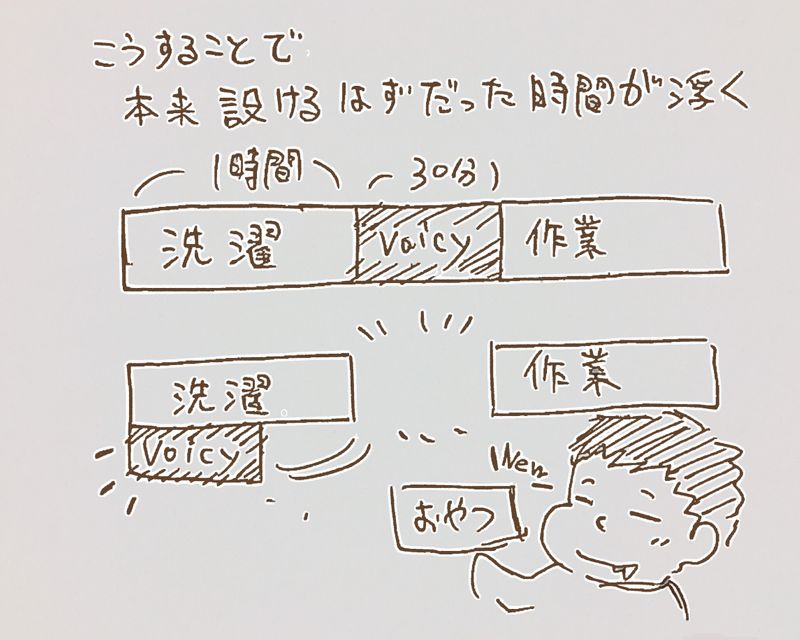 こうすることで
本来設けるはずだった時間が浮く
1時間 30分
洗濯 Voicy 作業
洗濯 作業
Voicy
New
おやつ